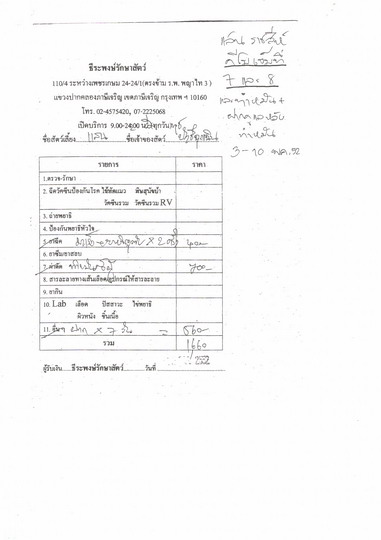 แสน ราชสีห์
7 และ 8
3-10 พค. 52
ธีระพงษ์รักษาสัตว์
110/4 ระหว่างเพชรเกษม 24-24/1(ตรงข้าม ร.พ. พญาไท 3 )
แขวงปากคลองภาษีเจริญ เขตภาษีเจริญ กรุงเทพ ฯ 10160
โทร. 02-4575420, 07-2225068
เปิดบริการ 9.00-24.00 น. ทุกวัน
ชื่อสัตว์เลี้ยง แสน ชื่อเจ้าของสัตว์
รายการ ราคา
1.ตรวจ-รักษา
2. ฉีดวัคซีนป้องกันโรค ไข้หัดแมว พิษสุนัขบ้า
วัคซีนรวม วัคซีนรวม RV
3. ถ่ายพยาธิ
4. ป้องกันพยาธิหัวใจ
5. ยาฉีด X 2 400
6. ยาซึมยาสลบ
7. ผ่าตัด 700
8. สารละลายทางเส้นเลือด/อุปกรณ์ให้สารละลาย
9. ยากิน
10. Lab เลือด ปัสสาวะ ไข่พยาธิ
ผิวหนัง ชิ้นเนื้อ
11. อื่นๆ ฝาก x 7 วัน = 560
รวม 1660
ผู้รับเงิน ธีระพงษ์รักษาสัตว์ วันที่